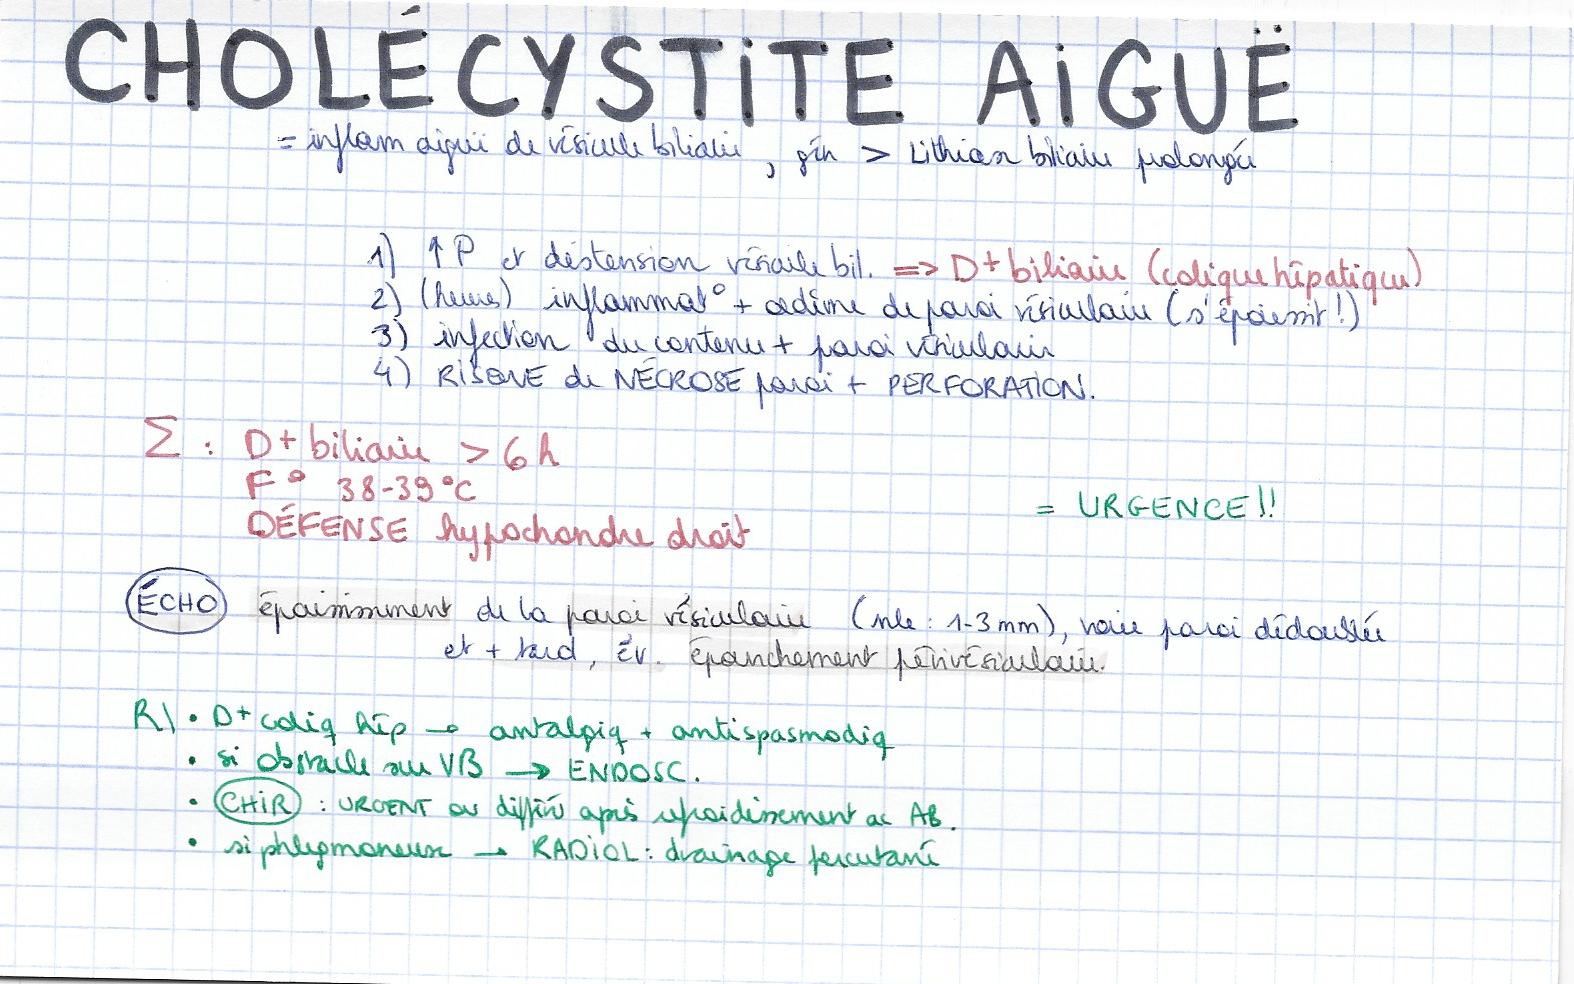 CHOLÉCYSTITE AIGUË
= inflam aiguë de vésicule biliaire, gén > Lithias biliaire prolongée
1) ↑ P et distension vésicule bil. => D+ biliaire (colique hépatique)
2) (heures) inflammat° + œdème de paroi vésiculaire (s'épaissit !)
3) infection du contenu + paroi vésiculaire
4) RISQUE de NÉCROSE paroi + PERFORATION.
Σ : D+ biliaire > 6 h
F° 38-39°C
= URGENCE !!
DÉFENSE hypochondre droit
ÉCHO épaississement de la paroi vésiculaire (nle : 1-3 mm), voire paroi dédoublée
et + tard, év. épanchement périvésiculaire.
R\ • D+ coliq hép → antalgiq + antispasmodiq
• si obstacle sur VB → ENDOSC.
• CHIR : URGENT ou différé après refroidissement ac AB.
• si phlegmoneux → RADIOL : drainage percutané